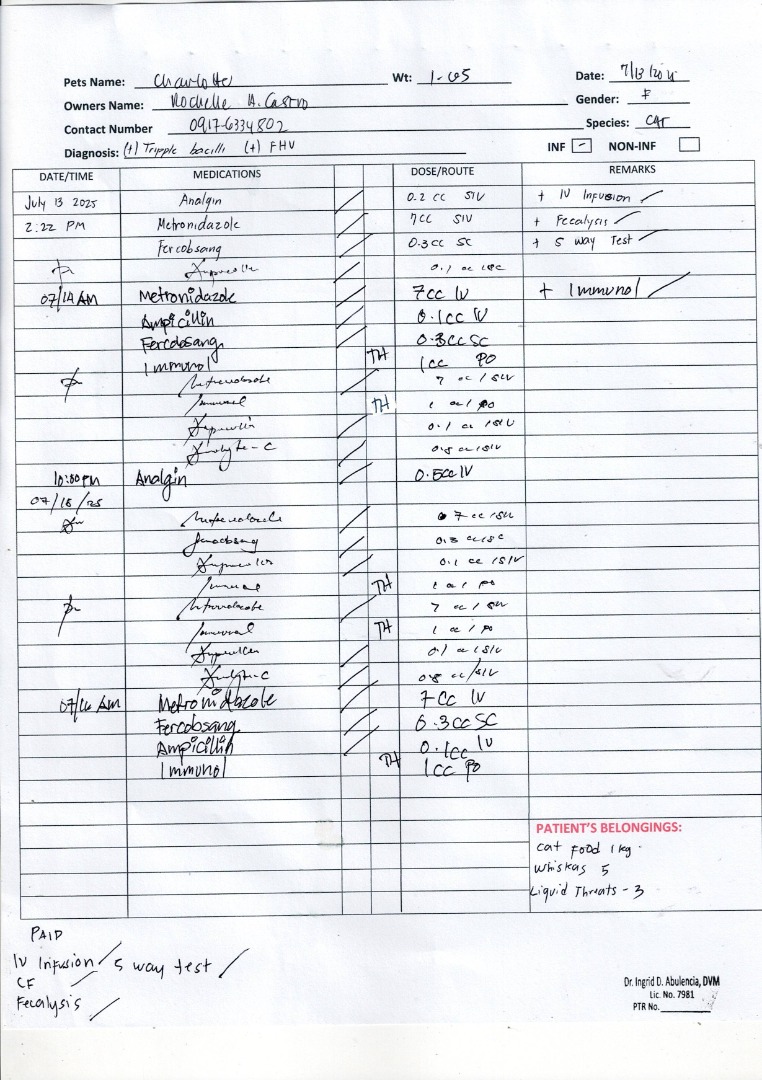 Pets Name: Charlotte Wt: 1.65 Date: 7/13/2025
Owners Name: Rochelle A. Castro Gender: F
Contact Number 0917-6334802 Species: CAT
Diagnosis: (+) Tripple bacilli (+) FHV INF NON-INF
DATE/TIME MEDICATIONS DOSE/ROUTE REMARKS
July 13 2025 Analgin 0.2 cc SIV + IV Infusion
2:22 PM Metronidazole 7cc SIV + Fecalysis
Fercobsang 0.3cc SC + 5 way Test
0.1 cc
07/14 AM Metronidazole 7cc IV + Immunol
Ampicillin 0.1cc IV
Fercobsang 0.3cc SC
Immunol TH 1cc PO
Metronidazole 7 cc / SIV
Immunol TH 1 cc / PO
Ampicillin 0.1 cc / SIV
Analyte-C 0.8 cc / SIV
10:00 PM Analgin 0.5cc IV
07/15/25
Metronidazole 7 cc / SIV
Fercobsang 0.3 cc / SC
Ampicillin 0.1 cc / SIV
Immunol TH 1 cc / PO
Metronidazole 7 cc / SIV
Immunol TH 1 cc / PO
Ampicillin 0.1 cc / SIV
Analyte-C 0.8 cc / SIV
07/16 AM Metronidazole 7cc IV
Fercobsang 0.3cc SC
Ampicillin 0.1cc IV
Immunol TH 1cc PO
PATIENT'S BELONGINGS:
Cat Food 1kg.
Whiskas 5
Liquid Threats - 3
PAID
IV Infusion 5 way test
CF
Fecalysis
Dr. Ingrid D. Abulencia, DVM
Lic. No. 7981
PTR No.